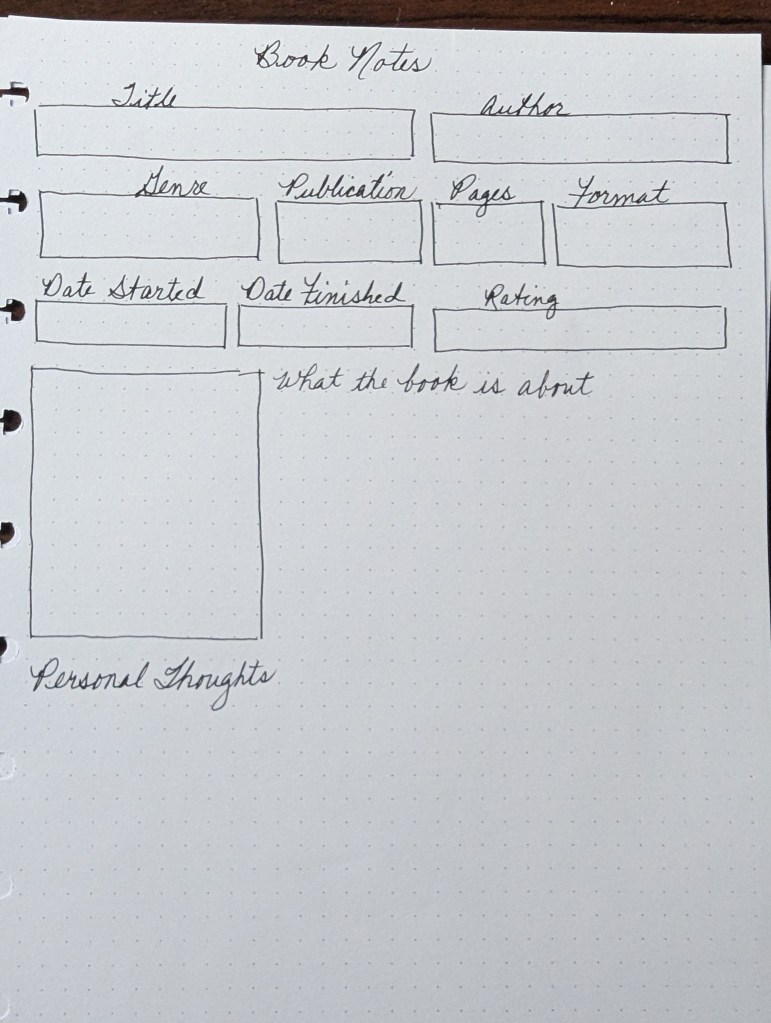 Book Notes
Title Author
Genre Publication Pages Format
Date Started Date Finished Rating
What the book is about
Personal Thoughts